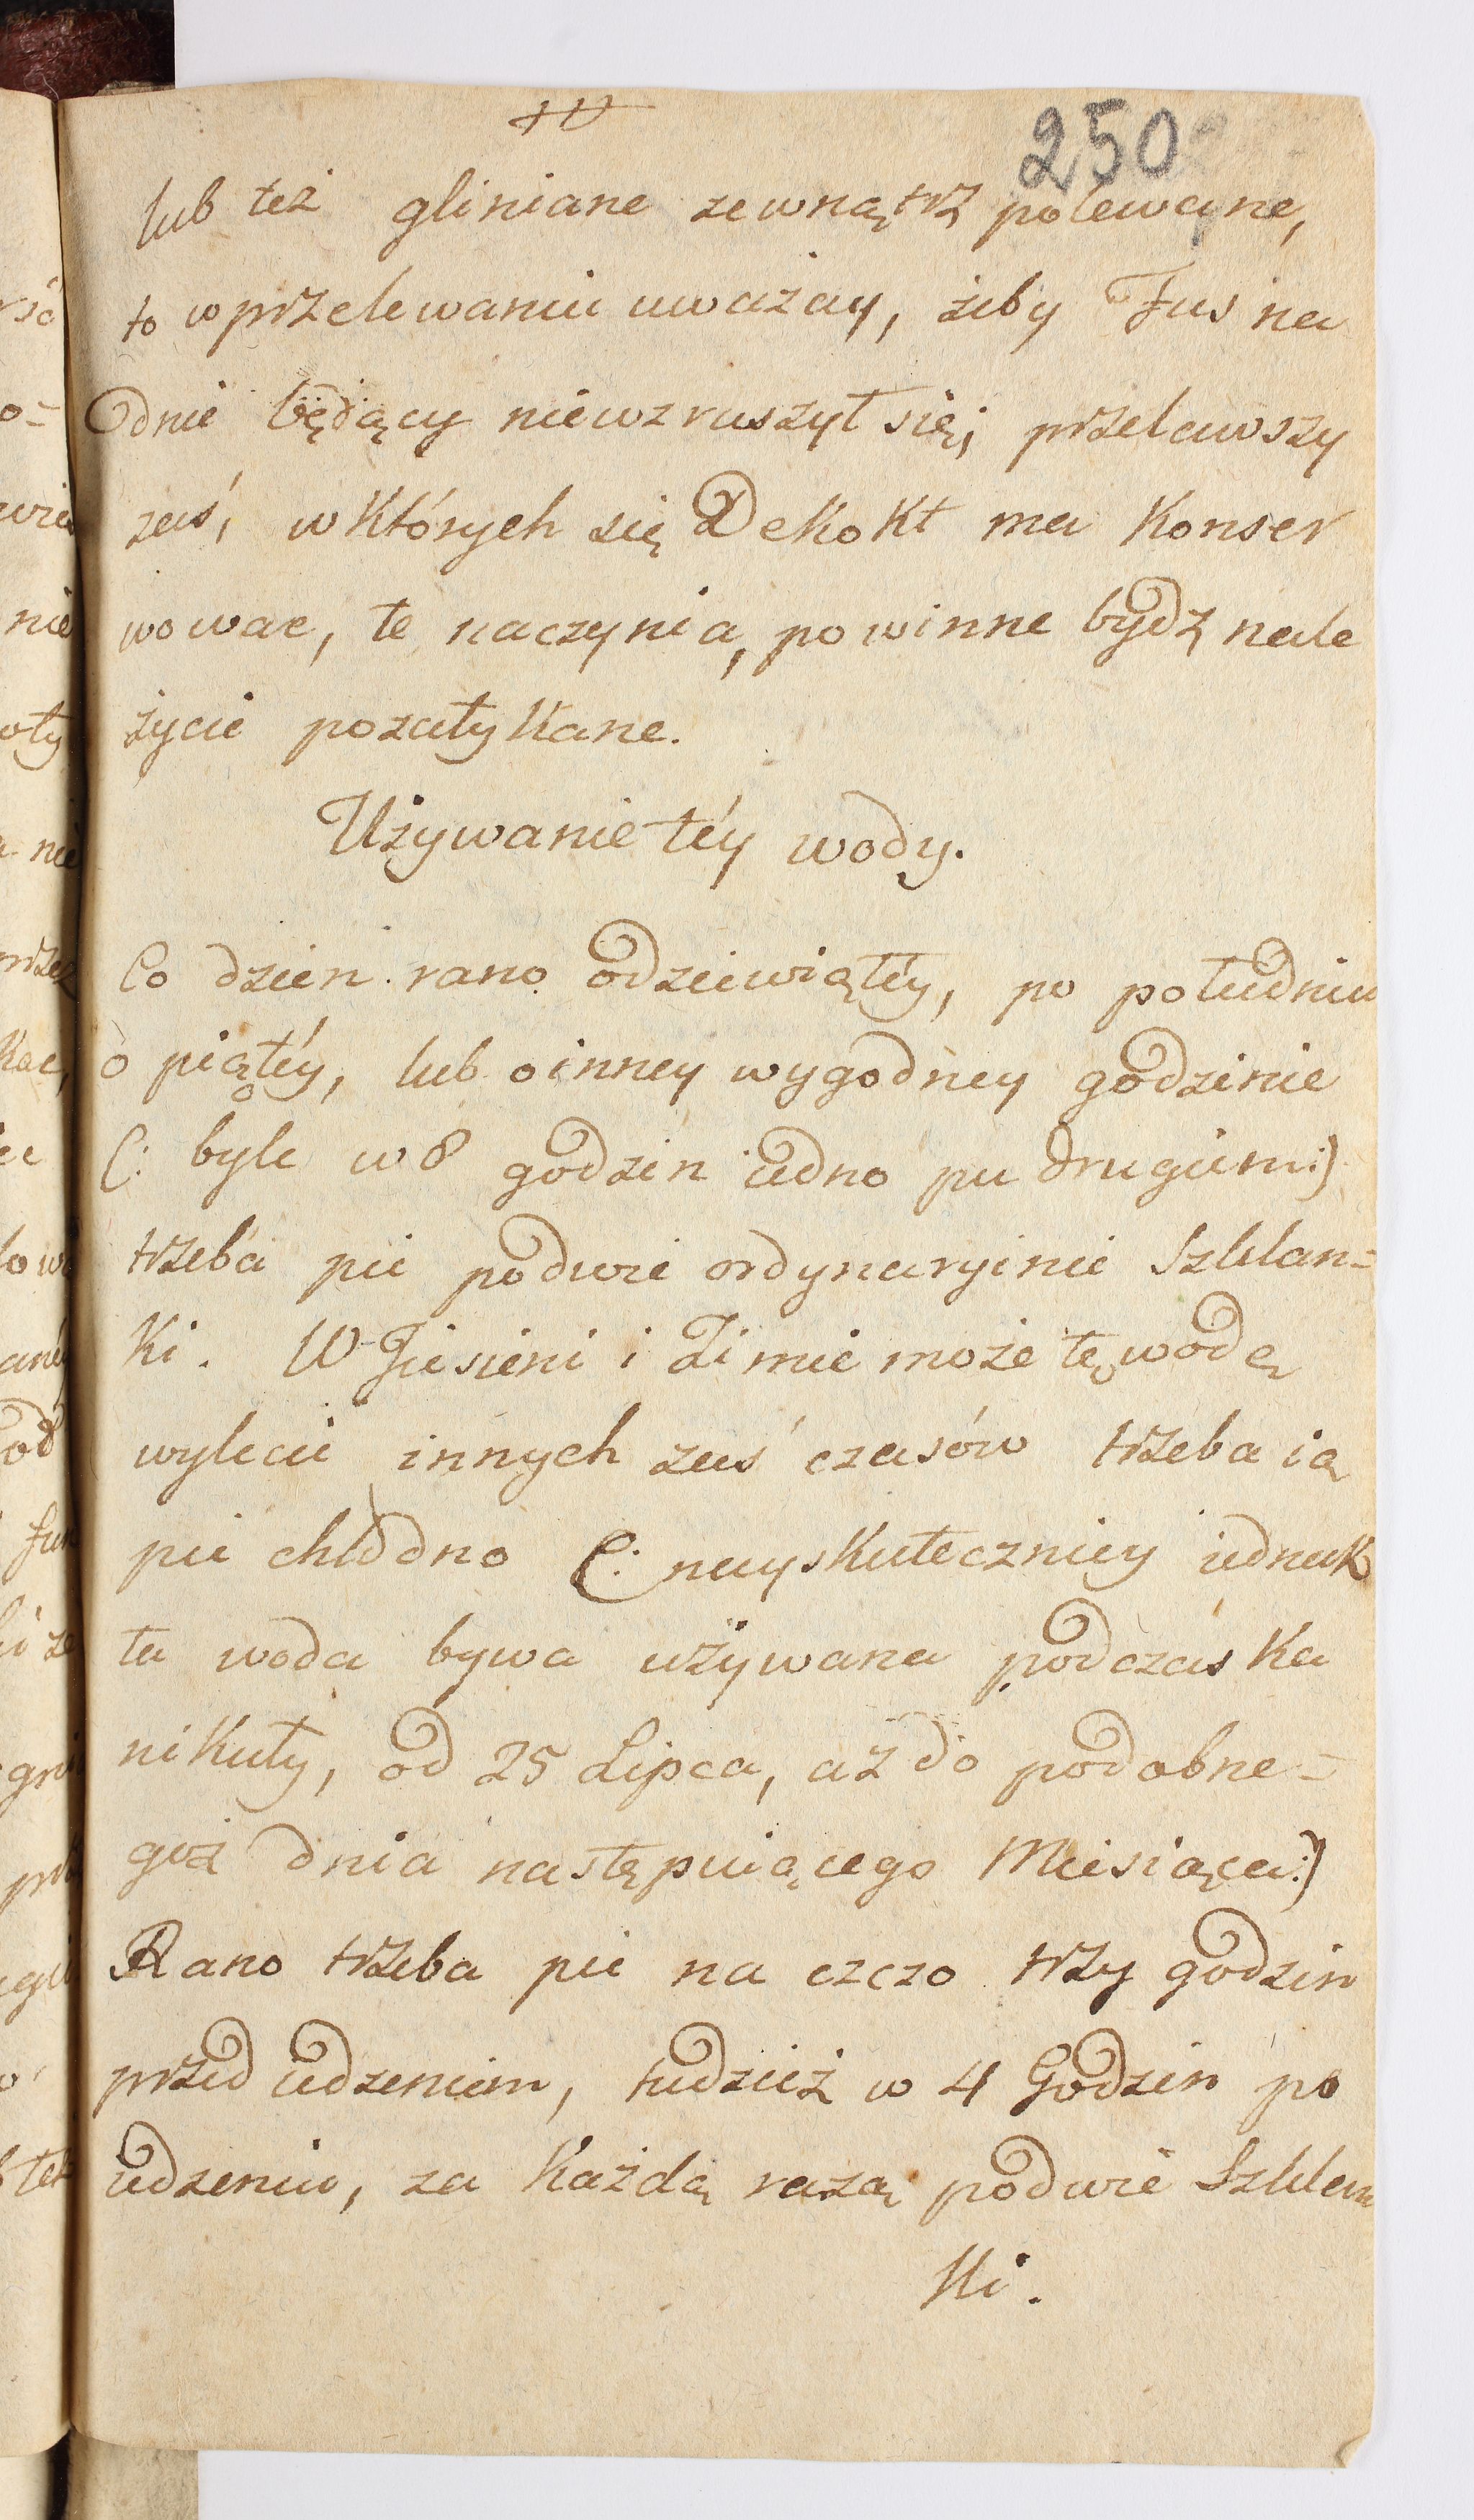 250
lub też gliniane zewnątrz polewane,
to w przelewaniu uważay, żeby Fus na
Odnie będący niewzruszył się; przelawszy
zaś, w Których się DekoKt ma Konser
wowac, te naczynia, powinne bydz nale
życie pozatyKane.
Używanie téy wody.
Co dzien rano odzeiwiątéy, po południu
o piątéy, lub o inney wygodney godzinie
(: byle w 8 godzin iedno pu drugiem:)
trzeba pic podwie ordynaryinie Szklan=
Ki. W Jiesieni i Zimie może tę wodę
wylecie innych zaś czasów trzeba ią
pic chłodno (: nayskuteczniey iednak
ta woda bywa używana podczas Ka
nikuły, od 25 Lipca, aż do podobne=
goż dnia następuiącego Miesiąca:)
Rano trzeba pic na czczo trzy godzin
przed iedzeniem, tudzież w 4 Godzin po
iedzeniu, za Każdą razą podwie Szklan
Ki.